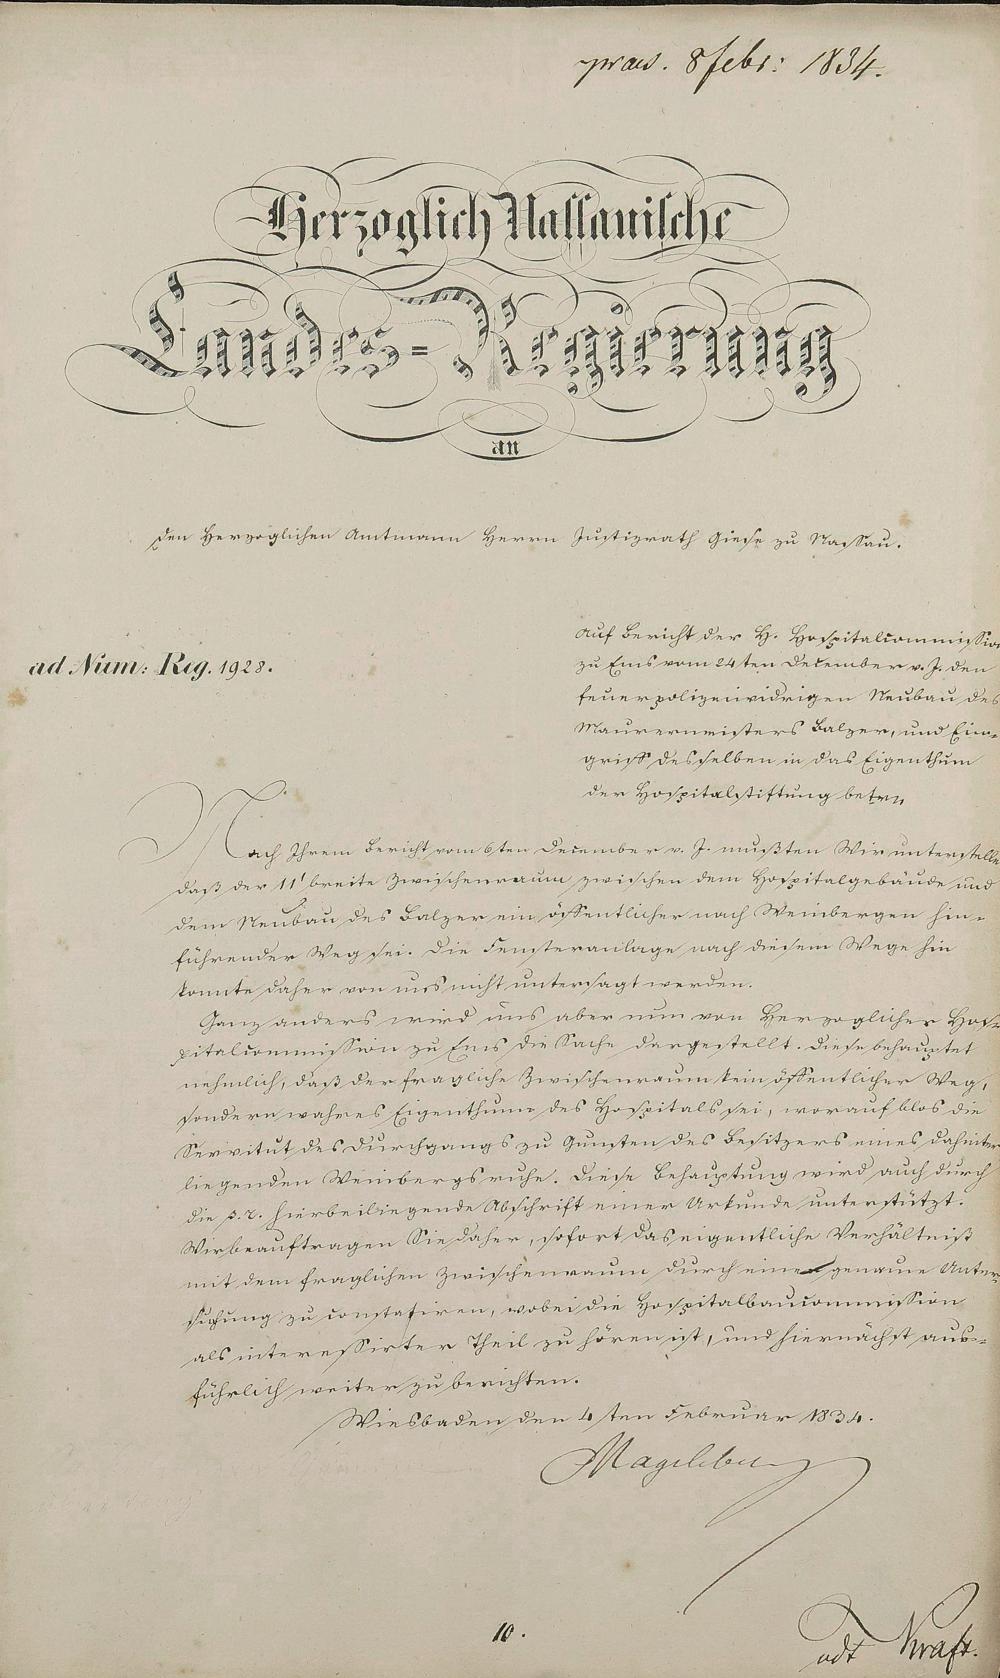 praes. 8 febr: 1834.
Herzoglich Nassauische
Landes-Regierung
an
den Herzoglichen Amtmann Herrn Justizrath Giese zu Nassau.
auf Bericht der H. Hospitalcommission
ad Num: Reg. 1928.
zu Ems vom 24ten December v. J. den
feuerpolizeiwidrigen Neubau des
Maurermeisters Balzer, und Ein-
griff desselben in das Eigenthum
der Hospitalstiftung betrn
Nach Ihrem Bericht vom 6ten December v. J. mußten Wir unterstelle
daß der 11' breite Zwischenraum zwischen dem Hospitalgebäude und
dem Neubau des Balzer ein öffentlicher nach Weinbergen hin-
führender Weg sei. Die Fensteranlage nach diesem Wege hin
konnte daher von uns nicht untersagt werden.
Ganz anders wird uns aber nun von Herzoglicher Hos-
pitalcommission zu Ems die Sache dargestellt. Diese behauptet
nehmlich, daß der fragliche Zwischenraum kein öffentlicher Weg,
sondern wahres Eigenthum des Hospitals sei, worauf blos die
Servitut des Durchgangs zu Gunsten des Besitzers eines dahinter
liegenden Weinbergs ruhe. Diese Behauptung wird auch durch
die s. r. hierbeiliegende Abschrift einer Urkunde unterstützt.
Wir beauftragen Sie daher, sofort das eigentliche Verhältniß
mit dem fraglichen Zwischenraum durch eine genaue Unter-
suchung zu constatiren, wobei die Hospitalbaucommission
als interessirter Theil zu hören ist, und hiernächst aus-
führlich weiter zu berichten.
Wiesbaden den 4ten Februar 1834.
Magdeburg
10.
vdt Kraft.